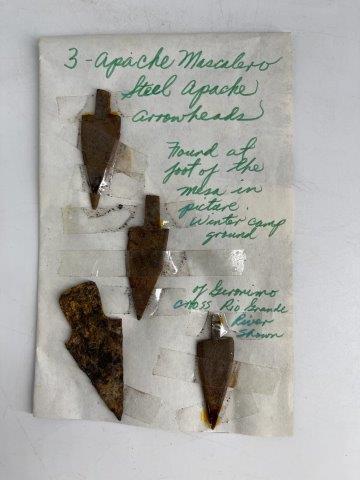 3 - Apache Mascalero
Steel Apache
arrowheads
Found at
foot of the
mesa in
picture.
Winter camp
ground
of Geronimo
cross Rio Grande
River
Shown